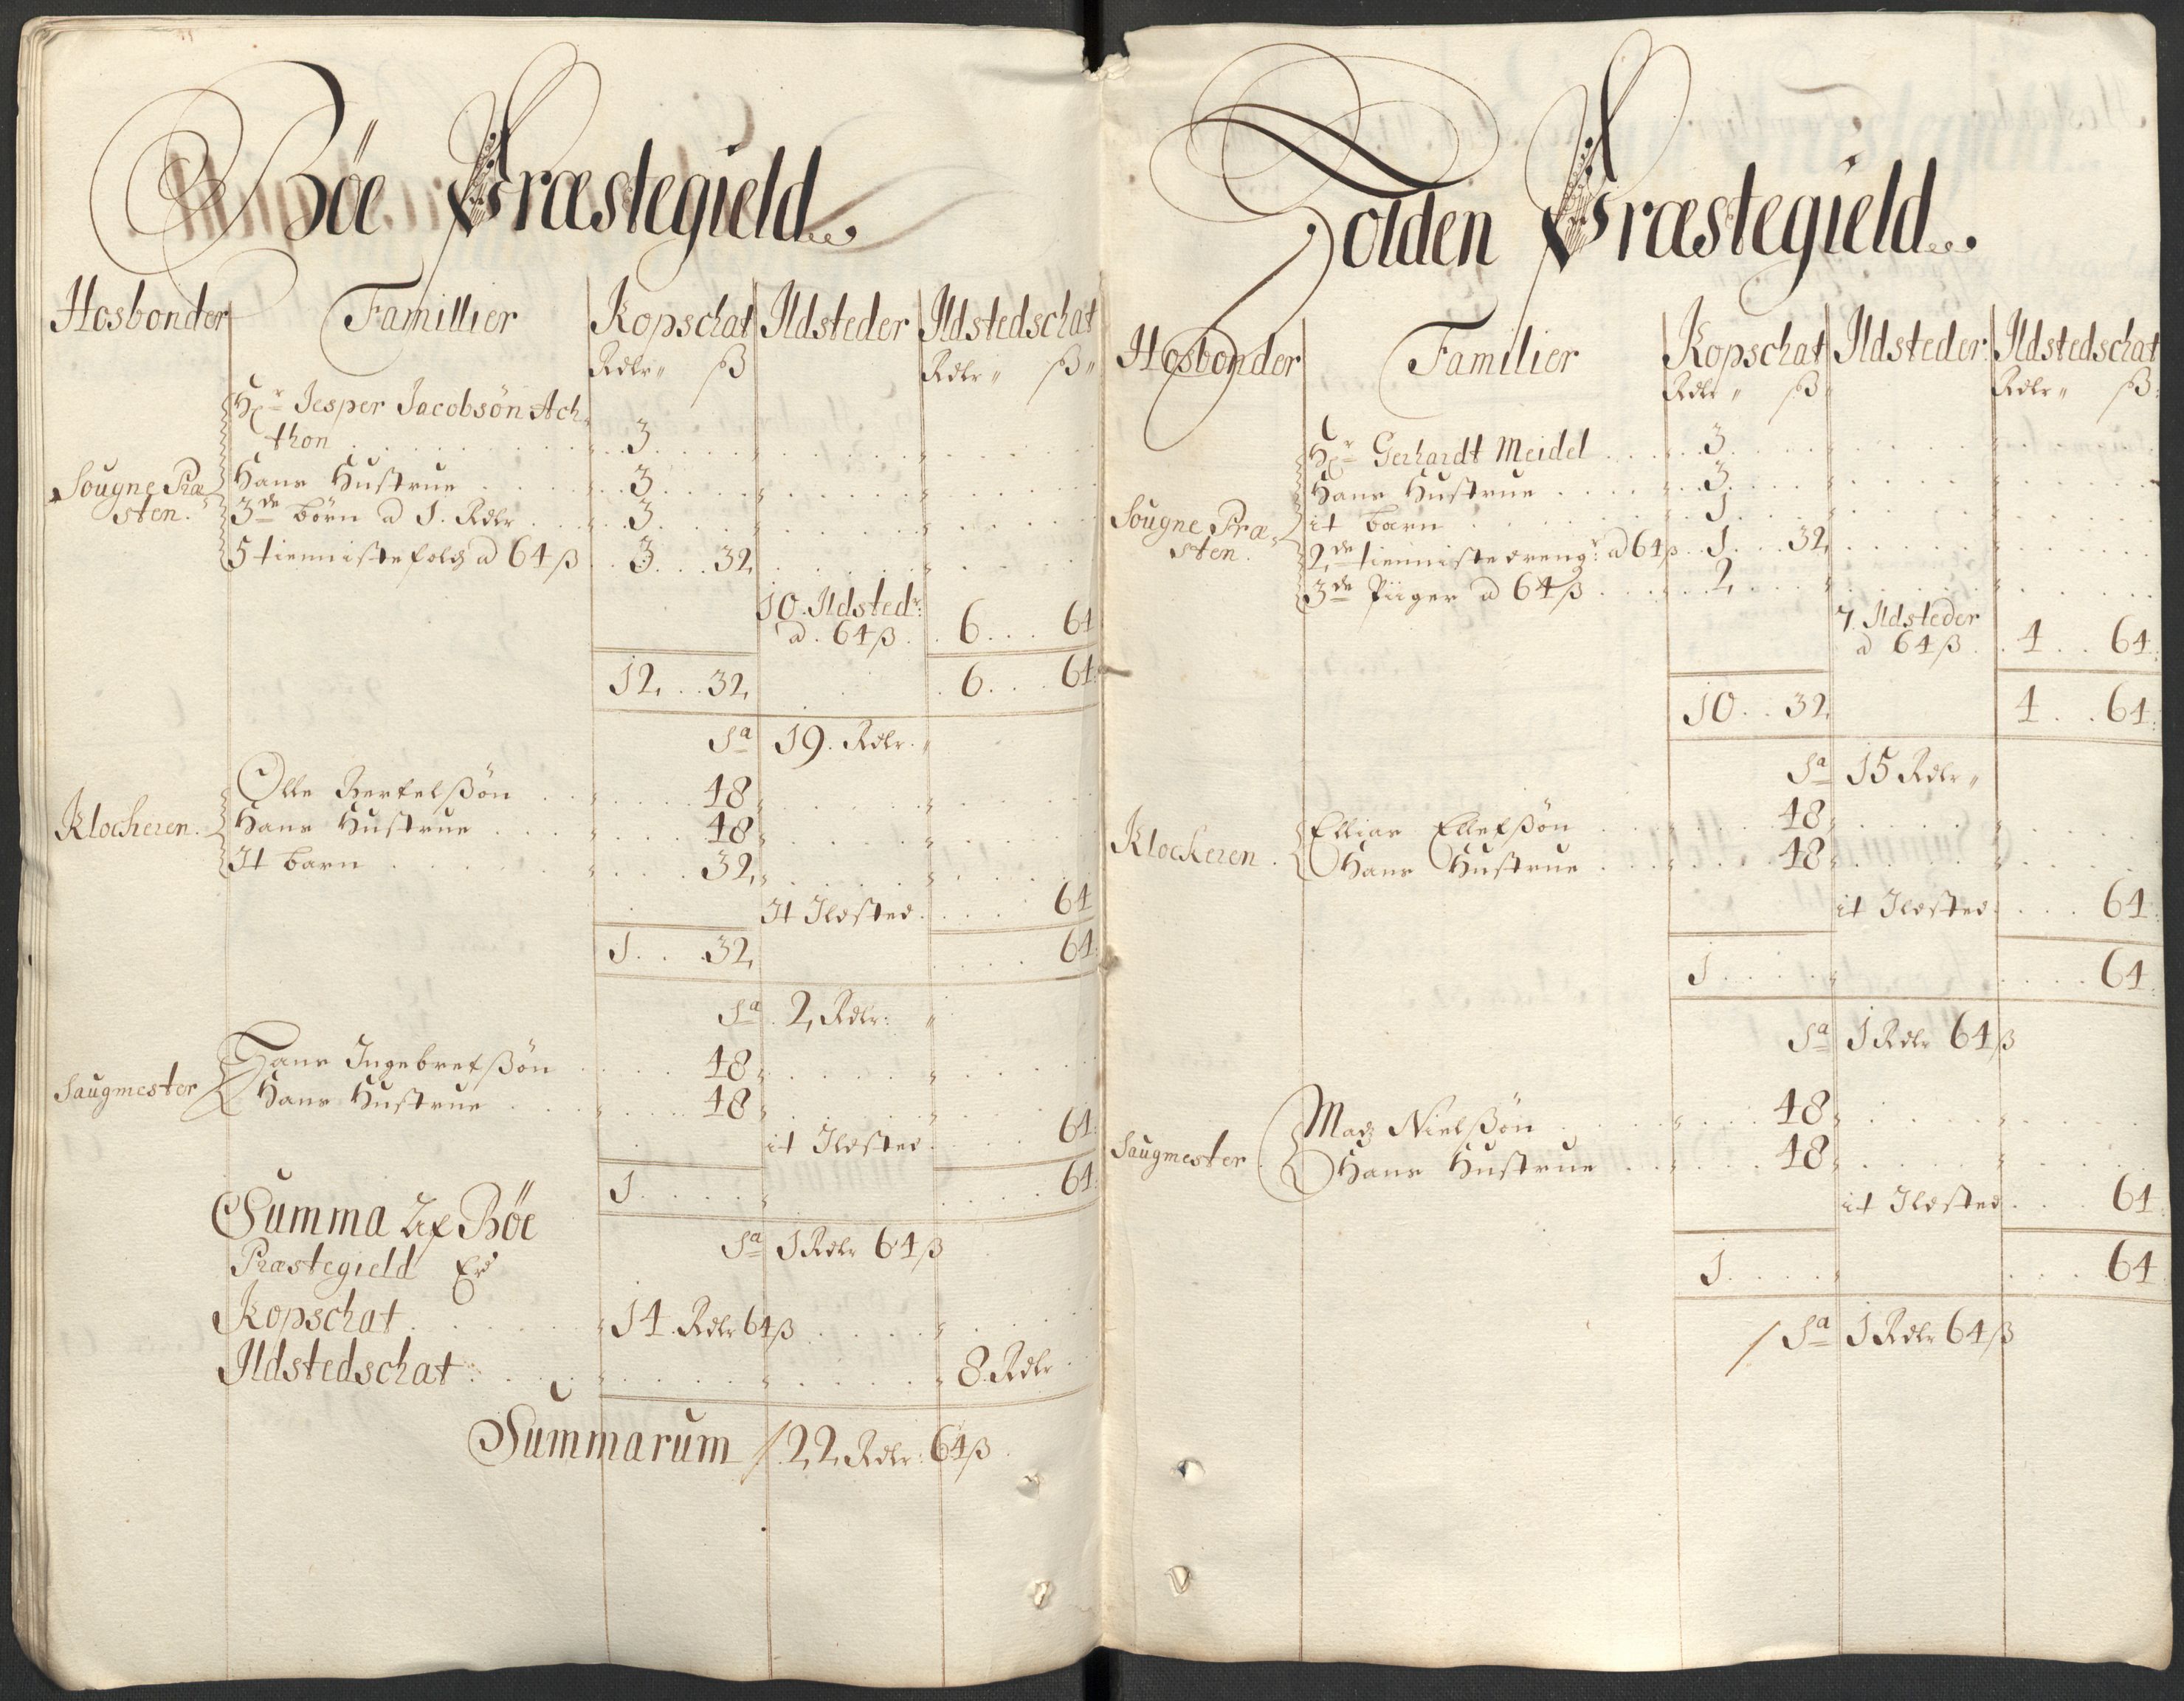 Böe Præstegield
Hosbonder Famillier Kopschat Ildsteder Ildstedschat
Rdlr ß Rdlr ß
Hr Jesper Jacobsön Ach-
thon 3
Sougne Præ- Hans Hustrue 3
sten. 3de börn a 1. Rdlr 3
5 tiennistefolch a 64 ß 3 32
10. Ildstedr:
a. 64 ß 6 64
12 32 6 64
Sa 19. Rdlr.
Olle Bertelßön 48
Klocheren. Hans Hustrue 48
It barn 32
It Ildsted 64
1 32 64
Sa 2 Rdlr:
Hans Ingebretßön 48
Saugmester Hans Hustrue 48
it Ildsted 64
1 64
Summa Af Böe
Sa 1 Rdlr 64 ß
Præstegield Er
Kopschat 14. Rdlr 64 ß
Ildstedschat 8. Rdlr
Summarum 22 Rdlr: 64 ß
Tolden Præstegield
Hosbonder Familier Kopschat Ildsteder Ildstedschat
Rdlr ß Rdlr ß
Hr Gerhardt Meidel 3
Hans Hustrue 3
Sougne Præ- it barn 1
sten. 2de tiennistedrengr a 64 ß 1 32
3de Piiger a 64 ß 2
7. Ildsteder
a 64 ß 4 64
10 32 4 64
Sa 15 Rdlr
Ellias Ellefßön 48
Klockeren. Hans Hustrue 48
it Ildsted 64
1 64
Sa 1 Rdlr 64 ß
Madz Nielßön 48
Saugmester Hans Hustrue 48
it Ildsted 64
1 64
Sa 1 Rdlr 64 ß